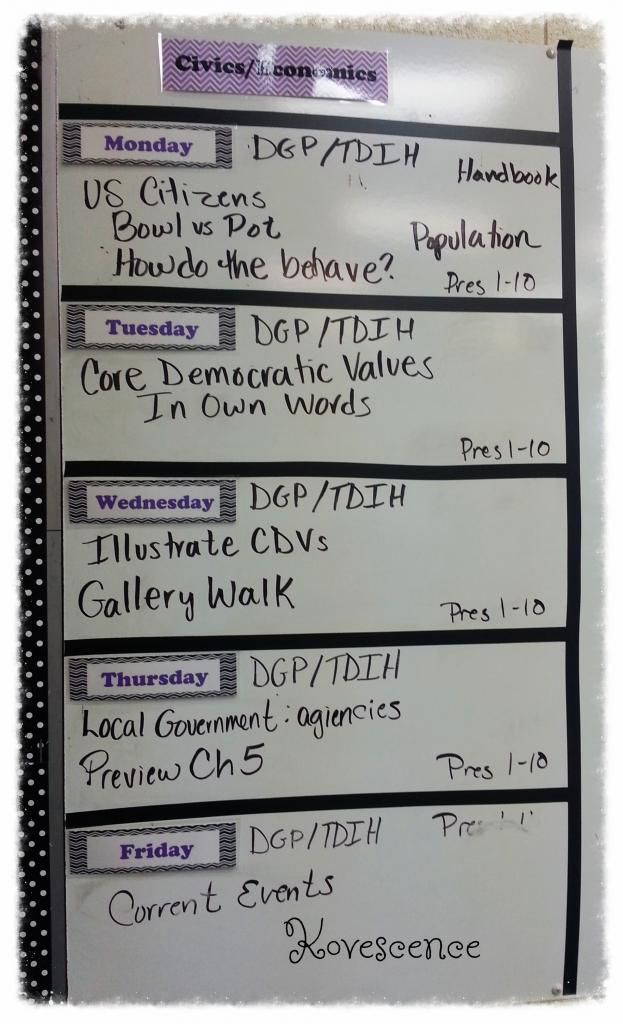 Civics/Economics
Monday DGP/TDIH Handbook
US Citizens
Bowl vs Pot Population
How do the behave? Pres 1-10
Tuesday DGP/TDIH
Core Democratic Values
In Own Words
Pres 1-10
Wednesday DGP/TDIH
Illustrate CDVs
Gallery Walk Pres 1-10
Thursday DGP/TDIH
Local Government: agiencies
Preview Ch 5 Pres 1-10
Friday DGP/TDIH
Current Events
Kovescence